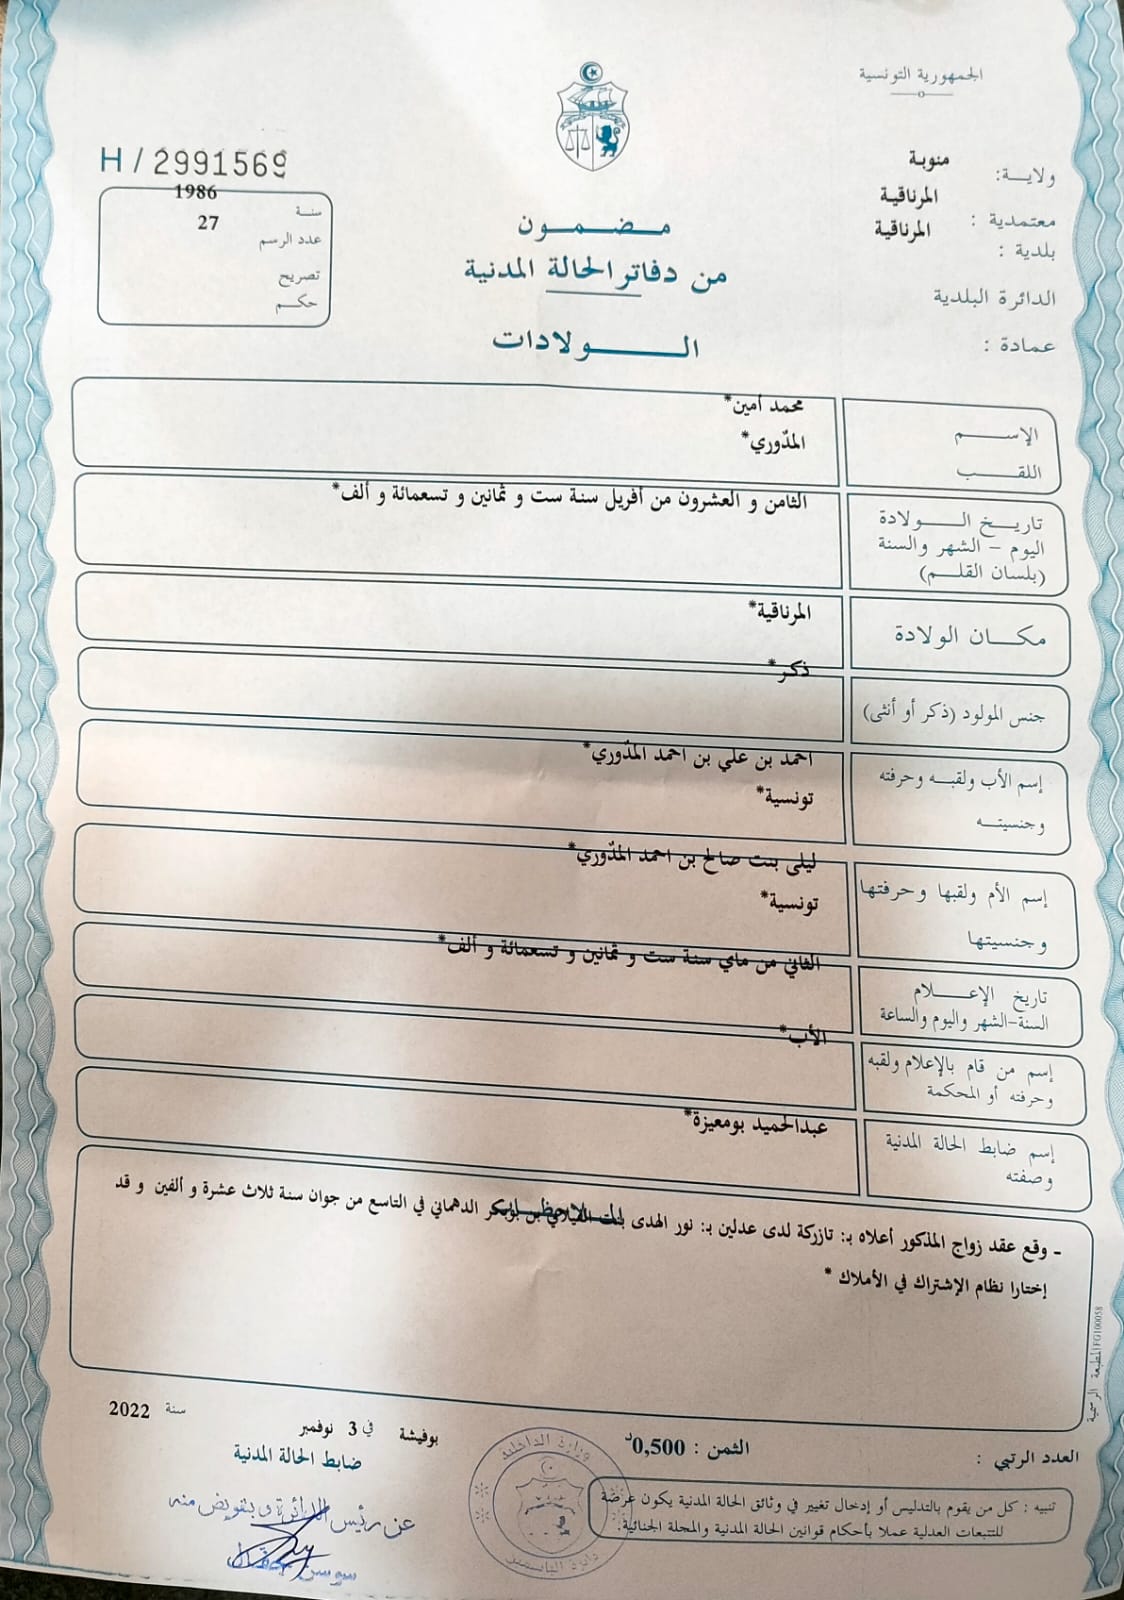 الجمهورية التونسية
ولاية: منوبة
معتمدية : المرناقية
بلدية : المرناقية
الدائرة البلدية
عمادة :
H / 2991569
سنة 1986
عدد الرسم 27
تصريح
حكم
مضمون
من دفاتر الحالة المدنية
الولادات
الإسم محمد أمين*
اللقب المدّوري*
تاريخ الولادة
اليوم - الشهر والسنة
(بلسان القلم)
الثامن و العشرون من أفريل سنة ست و ثمانين و تسعمائة و ألف*
مكان الولادة المرناقية*
جنس المولود (ذكر أو أنثى) ذكر*
إسم الأب ولقبه وحرفته احمد بن علي بن احمد المدّوري*
وجنسيته تونسية*
إسم الأم ولقبها وحرفتها ليلى بنت صالح بن احمد المدّوري*
وجنسيتها تونسية*
تاريخ الإعلام
السنة-الشهر واليوم والساعة
الثاني من ماي سنة ست و ثمانين و تسعمائة و ألف*
إسم من قام بالإعلام ولقبه
وحرفته أو المحكمة
الأب*
إسم ضابط الحالة المدنية
وصفته
عبدالحميد بومعيزة*
الملاحظات
- وقع عقد زواج المذكور أعلاه بـ: تازركة لدى عدلين بـ: نور الهدى بنت بن بوبكر الدهماني في التاسع من جوان سنة ثلاث عشرة و ألفين و قد
إختارا نظام الإشتراك في الأملاك *
المطبعة الرسمية
العدد الرتبي :
الثمن : 0,500د
بوفيشة في 3 نوفمبر سنة 2022
ضابط الحالة المدنية
عن رئيس الدائرة و بتفويض منه
سوسن
وزارة الداخلية
تنبيه : كل من يقوم بالتدليس أو إدخال تغيير في وثائق الحالة المدنية يكون عرضة
للتتبعات العدلية عملا بأحكام قوانين الحالة المدنية والمجلة الجنائية.